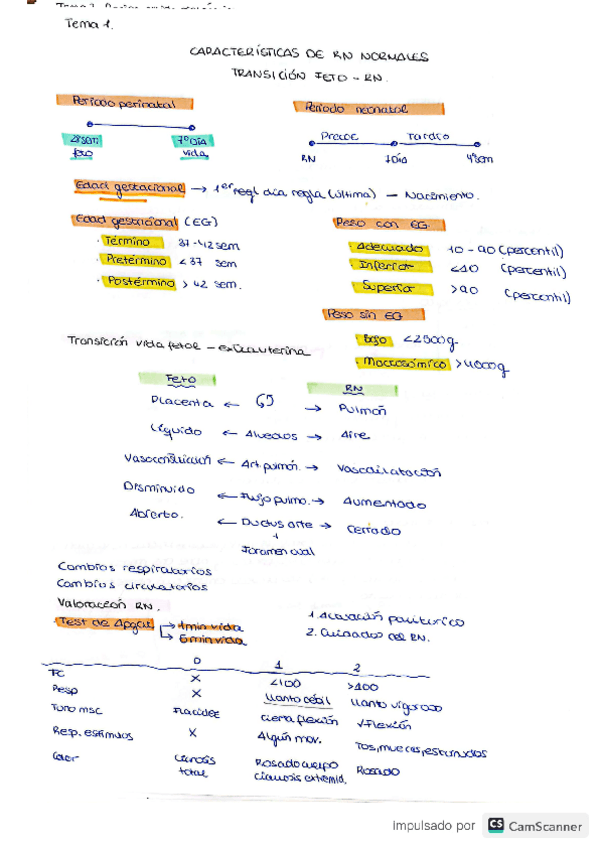 Tema 1.
CARACTERÍSTICAS DE RN NORMALES
TRANSICIÓN FETO - RN.
Periodo perinatal
28 sem feto
7º DÍA vida
Periodo neonatal
Precoz Tardío
RN 7 día 4ª sem
Edad gestacional → 1er regl día regla (última) — Nacimiento.
Edad gestacional (EG)
· Término 37-42 sem
· Pretérmino <37 sem
· Postérmino > 42 sem.
Peso con EG
Adecuado 10 - 90 (percentil)
Inferior <10 (percentil)
Superior >90 (percentil)
Peso sin EG
Bajo <2500g.
Macrosómico >4000g
Transición vida fetal - extrauterina
Feto RN
Placenta ← → Pulmón
Líquido ← Alveolos → Aire
Vasoconstricción ← Art. pulmón. → Vasodilatación
Disminuido ← Flujo pulmo. → Aumentado
Abierto. ← Ductus arte → Cerrado
+
Foramen oval
Cambios respiratorios
Cambios circulatorios
Valoración RN.
Test de Apgar → 1 min vida
→ 5 min vida
2. Cuidados del RN.
0 1 2
FC X <100 >100
Resp X Llanto débil Llanto vigoroso
Tono msc Flacidez Cierta flexión √Flexión
Resp. estímulos X Algún mov. Tos, muecas, estornudos
Color Cianosis total Rosado cuerpo cianosis extremid. Rosado
Impulsado por CS CamScanner